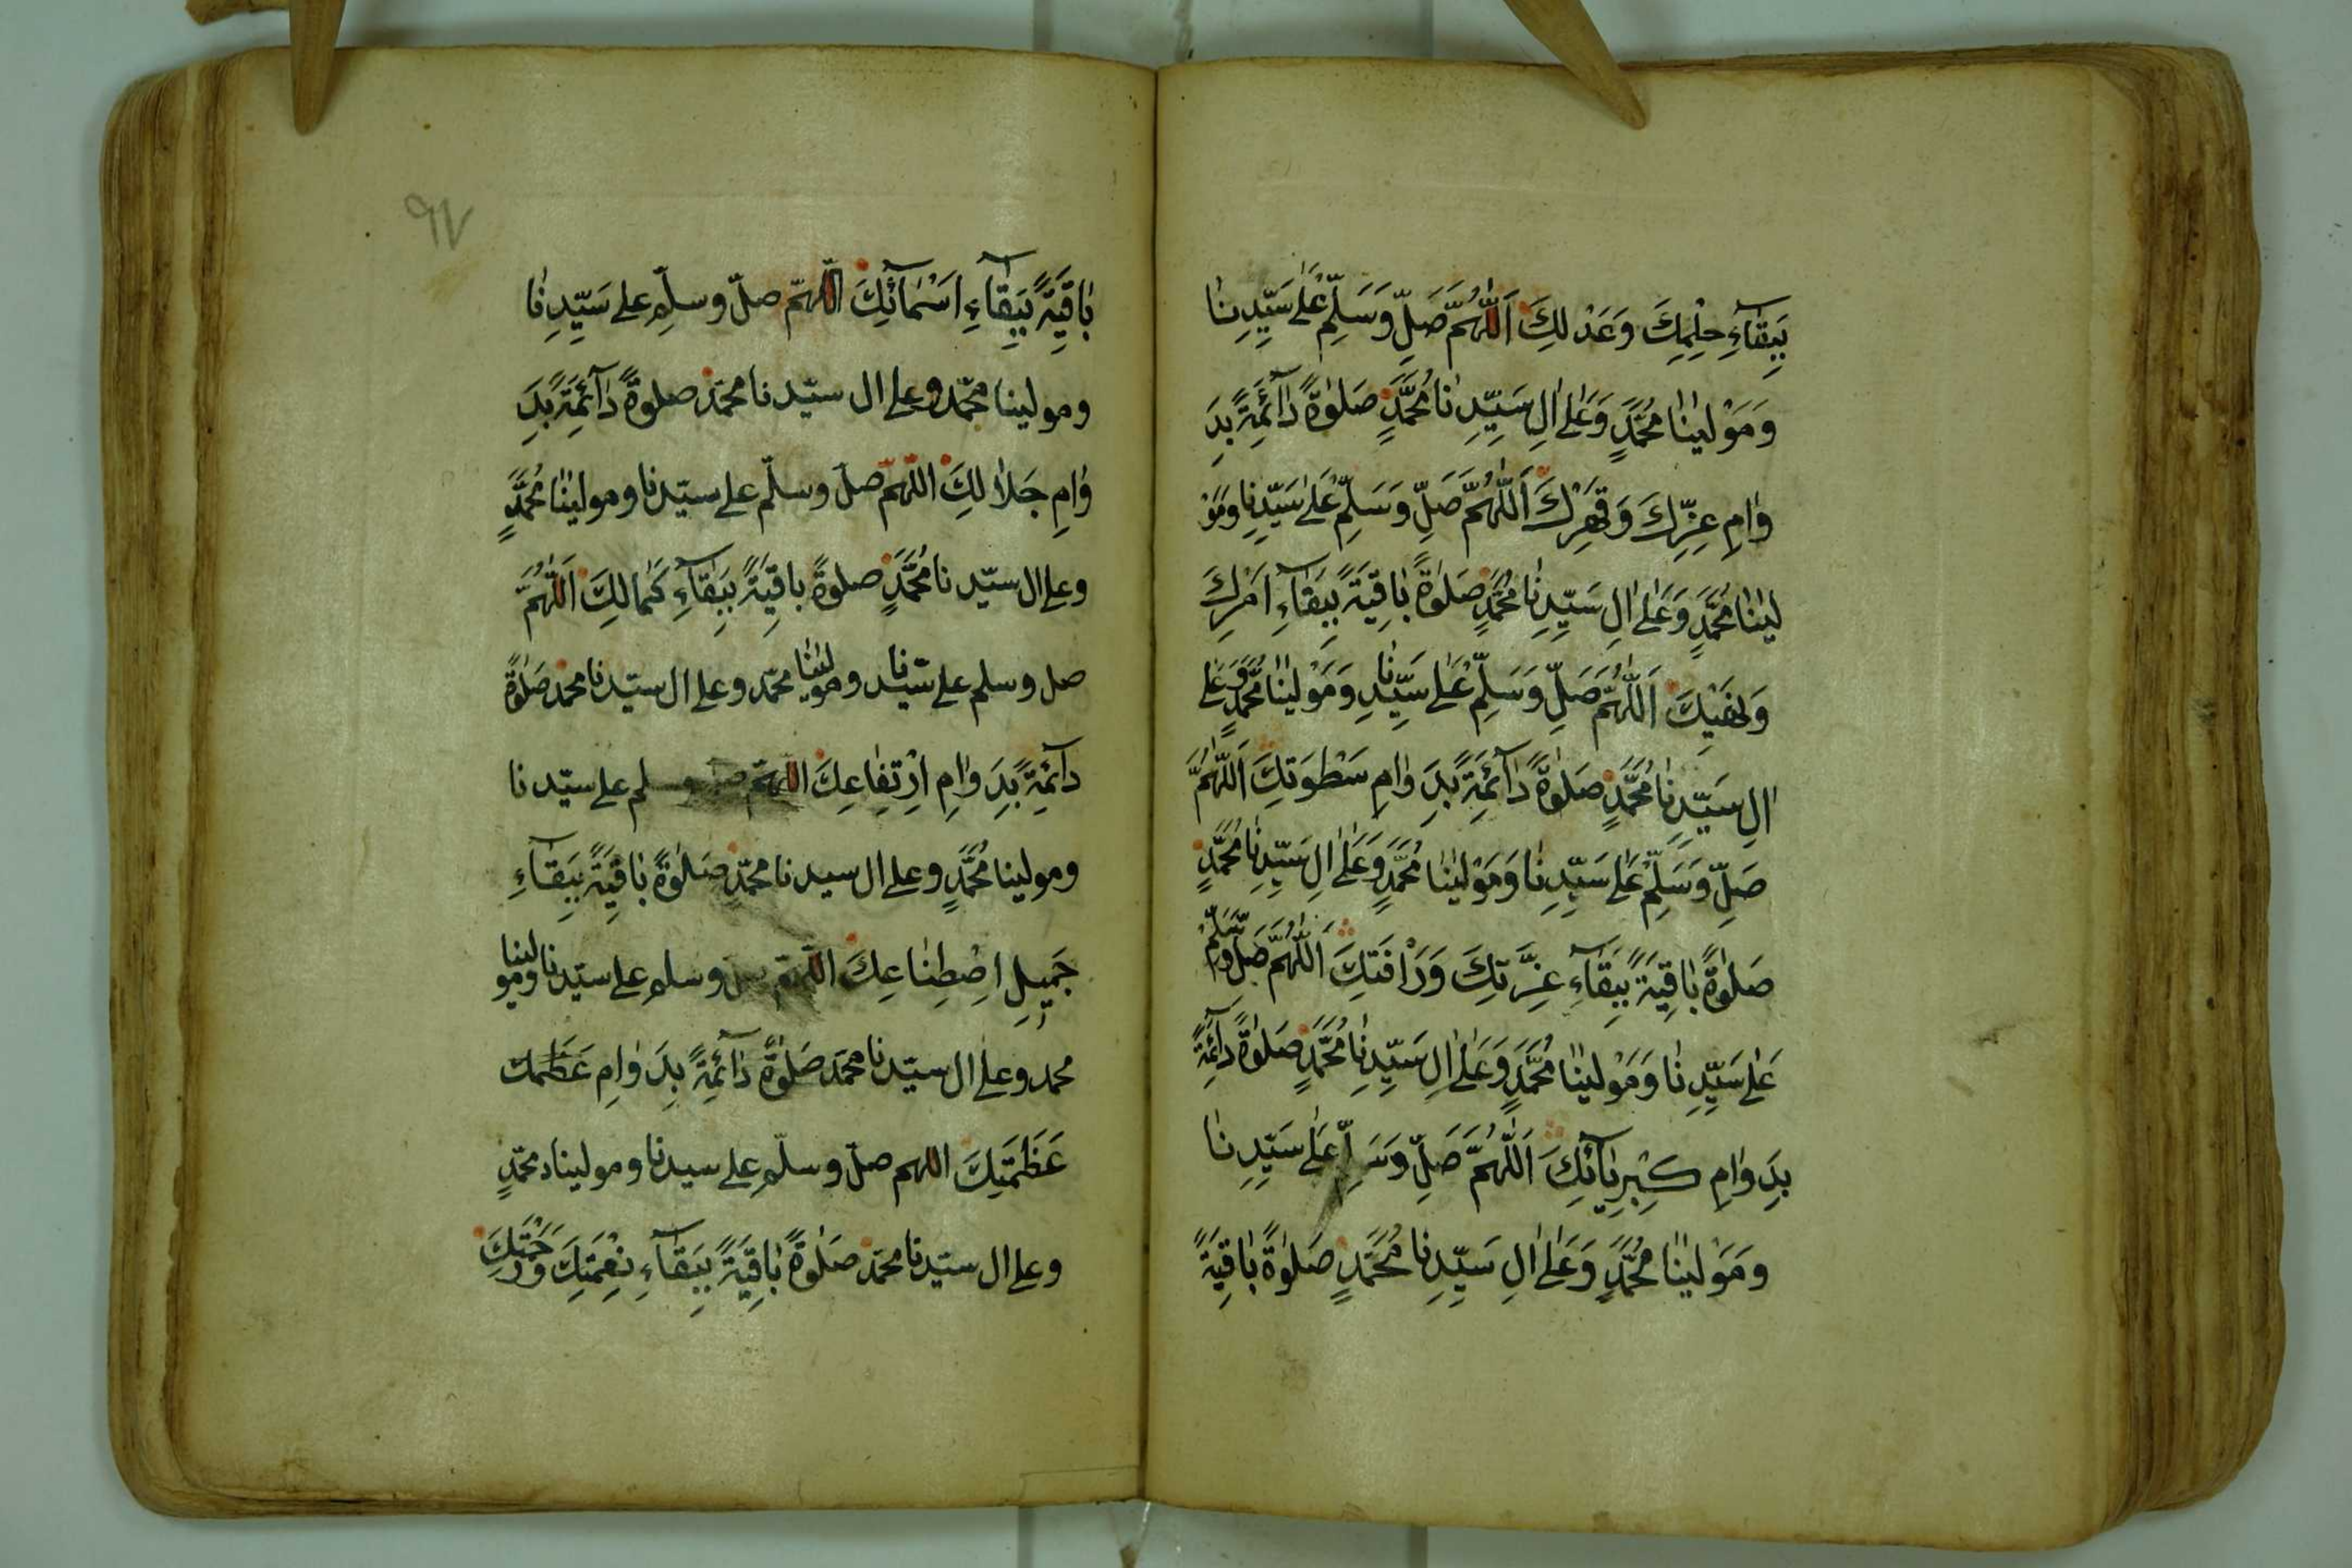 بِبَقَآءِ حِلْمِكَ وَعَدْلِكَ اَللّٰهُمَّ صَلِّ وَسَلِّمْ عَلٰى سَيِّدِنَا
وَمَوْلٰينَا مُحَمَّدٍ وَعَلٰى اٰلِ سَيِّدِنَا مُحَمَّدٍ صَلٰوةً دَآئِمَةً بِدَ
وَامِ عِزِّكَ وَقَهْرِكَ اَللّٰهُمَّ صَلِّ وَسَلِّمْ عَلٰى سَيِّدِنَا وَمَوْ
لٰينَا مُحَمَّدٍ وَعَلٰى اٰلِ سَيِّدِنَا مُحَمَّدٍ صَلٰوةً بَاقِيَةً بِبَقَآءِ اَمْرِكَ
وَنَهْيِكَ اَللّٰهُمَّ صَلِّ وَسَلِّمْ عَلٰى سَيِّدِنَا وَمَوْلٰينَا مُحَمَّدٍ وَعَلٰى
اٰلِ سَيِّدِنَا مُحَمَّدٍ صَلٰوةً دَآئِمَةً بِدَوَامِ سَطْوَتِكَ اَللّٰهُمَّ
صَلِّ وَسَلِّمْ عَلٰى سَيِّدِنَا وَمَوْلٰينَا مُحَمَّدٍ وَعَلٰى اٰلِ سَيِّدِنَا مُحَمَّدٍ
صَلٰوةً بَاقِيَةً بِبَقَآءِ عِزَّتِكَ وَرَاْفَتِكَ اَللّٰهُمَّ صَلِّ وَسَلِّمْ
عَلٰى سَيِّدِنَا وَمَوْلٰينَا مُحَمَّدٍ وَعَلٰى اٰلِ سَيِّدِنَا مُحَمَّدٍ صَلٰوةً دَآئِمَةً
بِدَوَامِ كِبْرِيَآئِكَ اَللّٰهُمَّ صَلِّ وَسَلِّ عَلٰى سَيِّدِنَا
وَمَوْلٰينَا مُحَمَّدٍ وَعَلٰى اٰلِ سَيِّدِنَا مُحَمَّدٍ صَلٰوةً بَاقِيَةً
٩٧
بَاقِيَةً بِبَقَآءِ اَسْمَآئِكَ اللّٰهمّ صلّ وسلّم على سَيِّدِنَا
ومولينا محمّد وعلى ال سيّدنا محمّد صلوةً دَآئِمَةً بِدَ
وَامِ جَلَالِكَ اللّٰهمّ صلّ وسلّم على سيّدنا ومولينَا مُحَمَّدٍ
وعلى ال سيّدنا مُحَمَّدٍ صلوةً باقِيَةً بِبَقَآءِ كَمَالِكَ اَللّٰهُمَّ
صل وسلم على سيّدنا ومولينا محمّد وعلى ال سيّدنا محمد صَلٰوةً
دآئِمَةً بِدَوَامِ اِرْتِفَاعِكَ اللّٰهمّ صل وسلم على سيّدنا
ومولينا مُحَمَّدٍ وعلى ال سيدنا محمّدٍ صَلٰوةً بَاقِيَةً بِبَقَآءِ
جَمِيلِ اصْطِنَاعِكَ اللّٰهمّ صل وسلم على سيّدنا ومولينا
محمد وعلى ال سيّدنا محمّد صَلٰوةً دَآئِمَةً بِدَوَامِ
عَظَمَتِكَ اللهم صلّ وسلّم على سيدنا ومولينا محمّدٍ
وعلى ال سيّدنا محمّد صَلٰوةً بَاقِيَةً بِبَقَآءِ نِعْمَتِكَ وَرَحْمَتِكَ